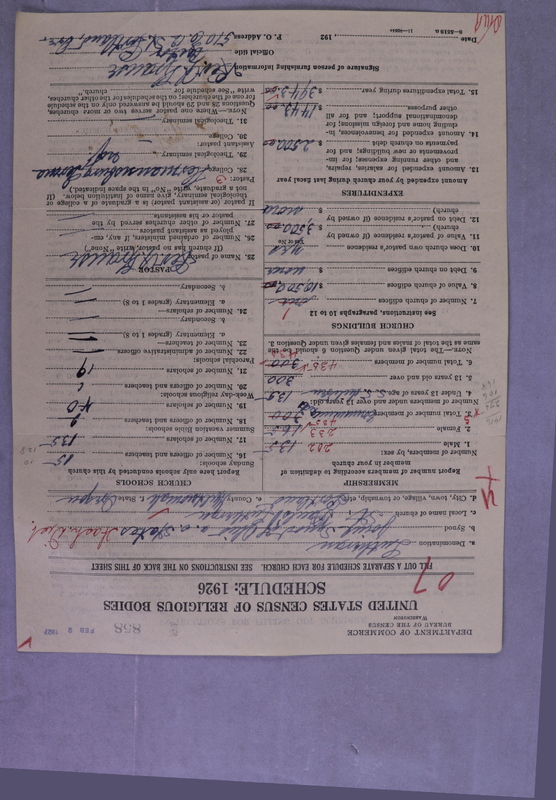 DEPARTMENT OF COMMERCE
BUREAU OF THE CENSUS
WASHINGTON
858
FEB 2 1927
UNITED STATES CENSUS OF RELIGIOUS BODIES
SCHEDULE: 1926
FILL OUT A SEPARATE SCHEDULE FOR EACH CHURCH. SEE INSTRUCTIONS ON THE BACK OF THIS SHEET
a. Denomination Lutheran
b. Synod Joint Synod of Ohio a. o. States
c. Local name of church St. Paul's Lutheran
d. City, town, village, or township, etc. Portland e. County Multnomah State Oregon
MEMBERSHIP
Report number of members according to definition of member in your church
Number of members, by sex:
1. Male 135 202
2. Female 165 233
3. Total number of members 300 435
Number of members under and over 13 years old:
4. Under 13 years of age 135
5. 13 years old and over 300
6. Total number of members 300 435
NOTE.—The total given under Question 6 should be the
same as the total of males and females given under Question 3.
CHURCH BUILDINGS
See instructions, paragraphs 10 to 12
7. Number of church edifices one 1
8. Value of church edifices $ 10,500.00
9. Debt on church edifices $ none
10. Does church own pastor's residence yes
Yes or No
11. Value of pastor's residence (if owned by
church) $ 3500.00
12. Debt on pastor's residence (if owned by
church) $ none
EXPENDITURES
Amount expended by your church during last fiscal year
13. Amount expended for salaries, repairs,
and other running expenses; for im-
provements or new buildings; and for
payments on church debt $ 2500.00
14. Amount expended for benevolences, in-
cluding home and foreign missions; for
denominational support; and for all
other purposes $ 1443.00
15. Total expenditures during year $ 3943.00
CHURCH SCHOOLS
Report here only schools conducted by this church
Sunday schools:
16. Number of officers and teachers 15
17. Number of scholars 135
Summer vacation Bible schools:
18. Number of officers and teachers 2
19. Number of scholars 40
Week-day religious schools:
20. Number of officers and teachers 1
21. Number of scholars 19
Parochial schools:
22. Number of administrative officers
23. Number of teachers—
a. Elementary (grades 1 to 8)
b. Secondary
24. Number of scholars—
a. Elementary (grades 1 to 8)
b. Secondary
PASTOR
25. Name of pastor Geo. F. Krauser
(If church has no pastor write "None")
26. Number of ordained ministers, if any, em-
ployed as assistant pastors
27. Number of other churches served by the
pastor or his assistants
If pastor (or assistant pastor) is a graduate of a college or
theological seminary, give name of institution below. (If
not a graduate, write "No" in the space indicated.)
Pastor:
28. College
29. Theological seminary
Assistant pastor:
30. College
31. Theological seminary
NOTE.—Where one pastor serves two or more churches,
Questions 28 and 29 should be answered only on the schedule
for one of the churches; on the schedules for the other churches,
write "See schedule for church."
Signature of person furnishing information Geo. F. Krauser
Official title Pastor
P. O. Address Portland, Ore.
Date , 192